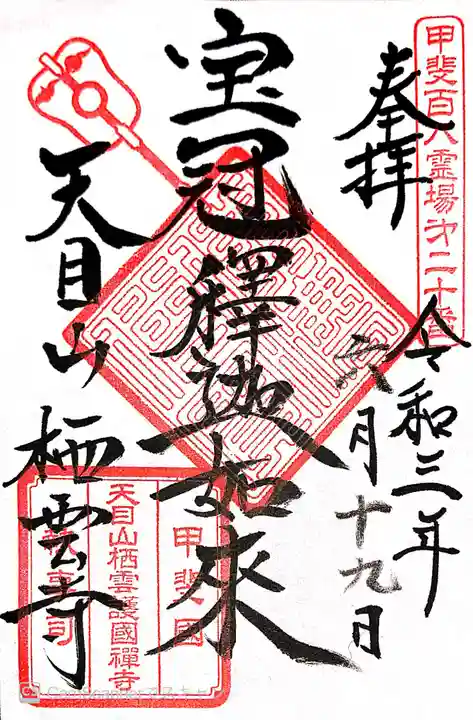 甲斐百八霊場第二十番
奉拝
令和三年
六月十九日
宝冠釋迦如来
天目山栖雲寺
甲斐国
天目山栖雲護國禪寺